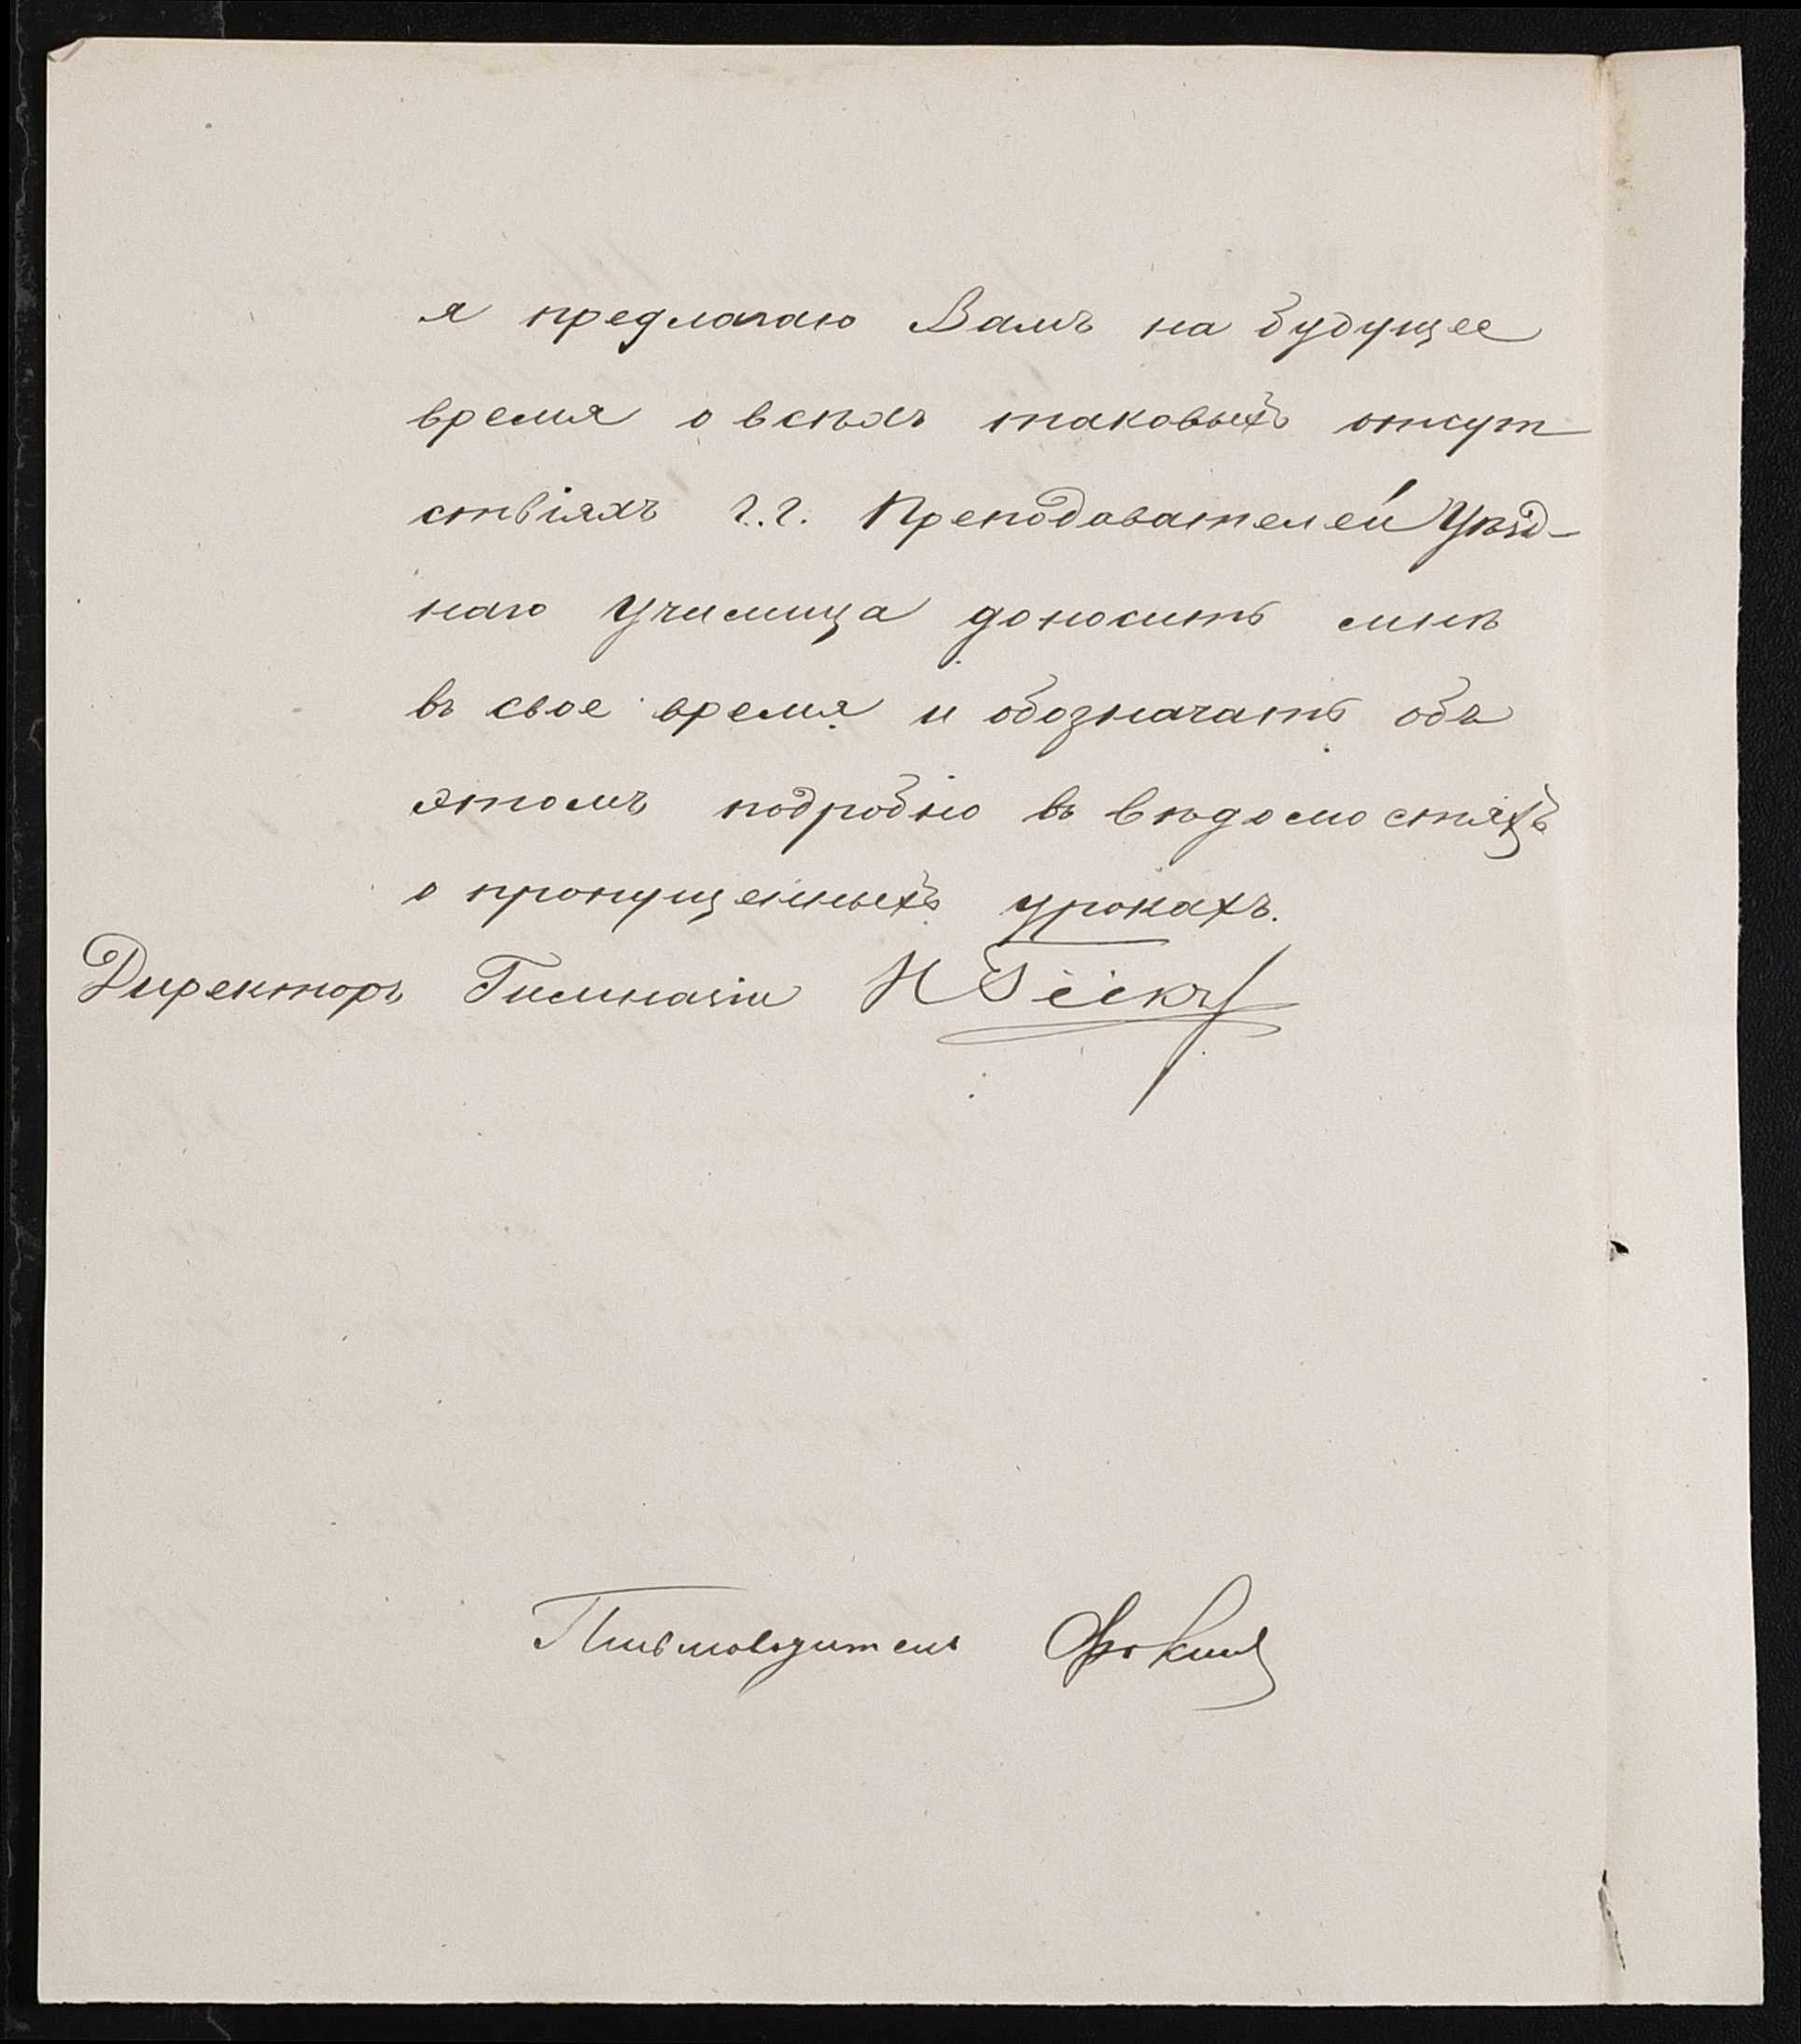 я предлагаю Вамъ на будущее
время о всѣхъ таковыхъ отсут
ствіяхъ г.г. Преподавателей Уѣзд-
наго Училища доносить мнѣ
въ свое время и обозначать объ
этомъ подробно въ вѣдомостяхъ
о пропущенныхъ урокахъ.
Директоръ Гимназіи Н
Письмоводитель Фокинъ